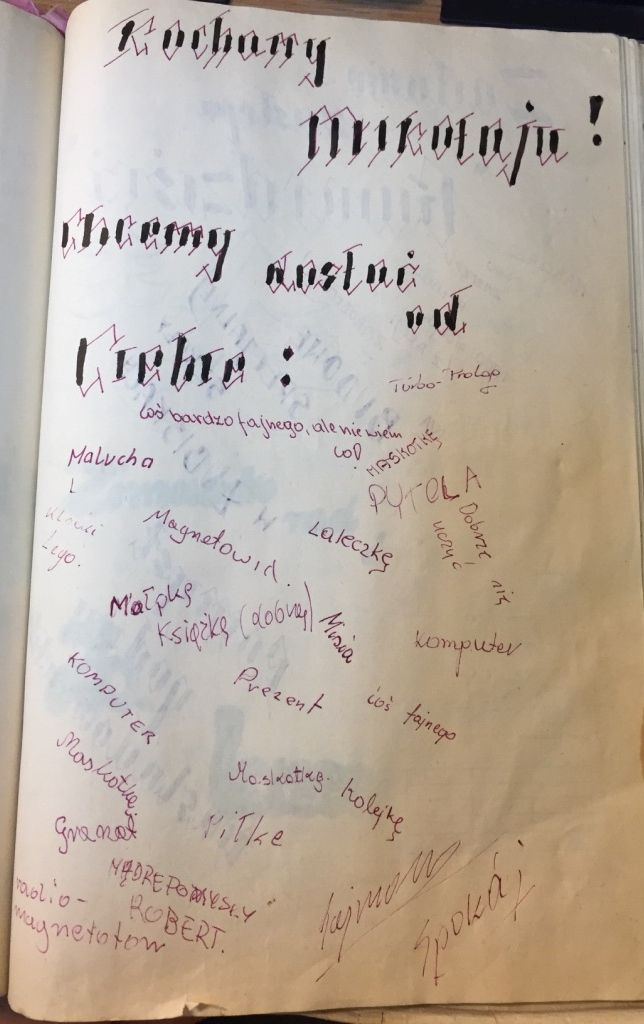 Kochany
Mikołaju!
chcemy dostać
od
Ciebie:
Turbo-Prolog
coś bardzo fajnego, ale nie wiem
co?
MASKOTKĘ
Malucha
PYTOLA
i
klocki
Lego.
Magnetowid.
Laleczkę
Dobrze się
uczyć
Małpkę
Książkę (dobrą)
Misia
komputer
KOMPUTER
Prezent
coś fajnego
Maskotkę
Maskotkę.
kolejkę
Granat
Piłke
MĄDRE POMYSŁY
ROBERT.
radio-
magnetofon
Spokój